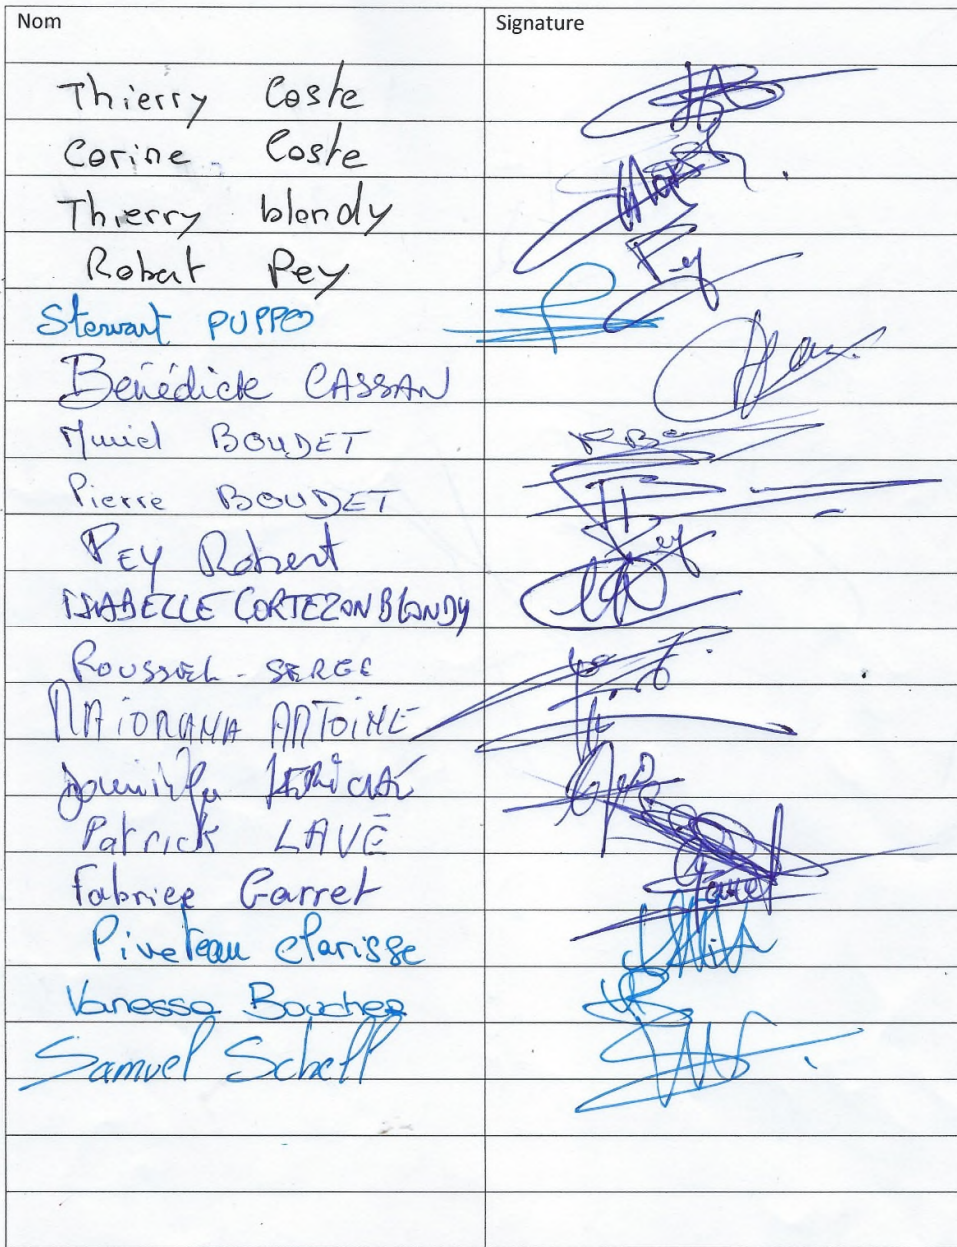 Nom Signature
Thierry Coste
Corine Coste
Thierry blondy
Robert Pey
Pey
Stewart PUPPO
Bénédicte CASSAN
Muriel BOUDET
Pierre BOUDET
PEY Robert
Pey
ISABELLE CORTEZON BLONDY
ROUSSEL - SERGE
MAIORANA ANTOINE
Patrick LAVÉ
Fabrice Garret
Garret
Piveteau Clarisse
Vanessa Boucher
Samuel Schell